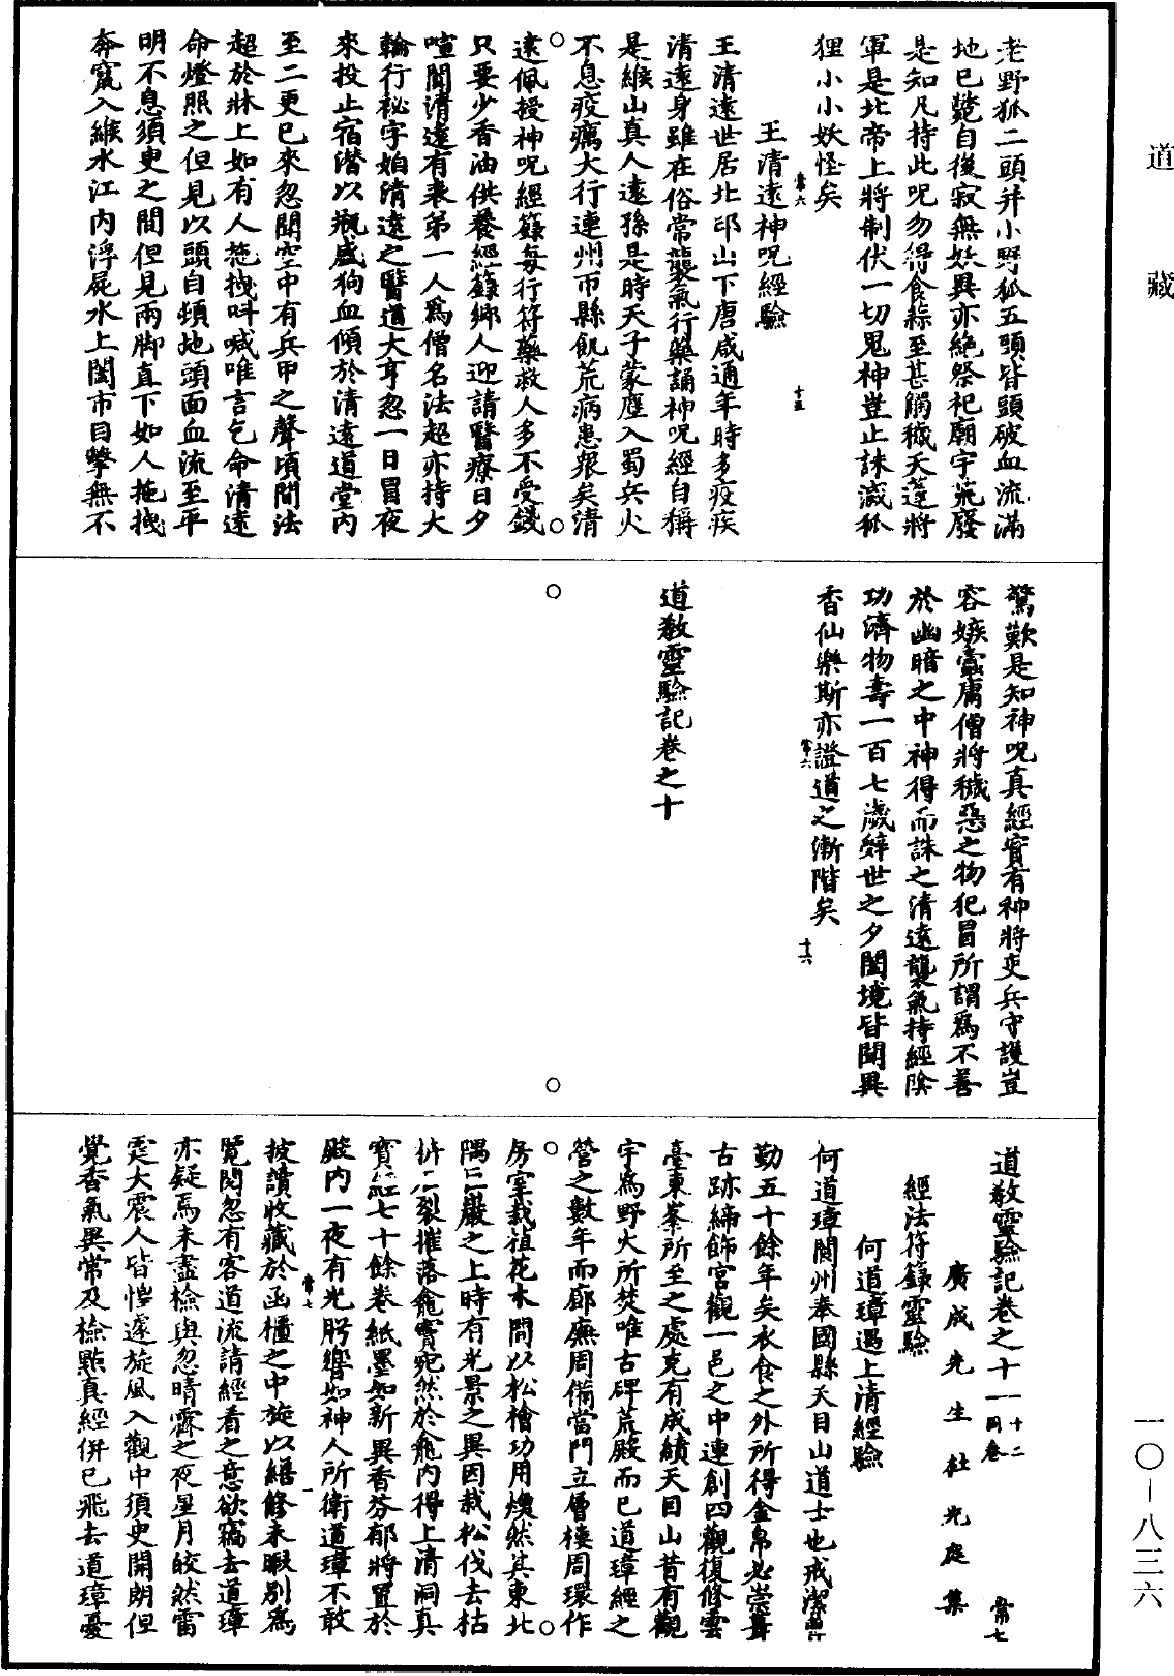 道藏
老野狐二頭并小野狐五頭皆頭破血流滿
地已斃自後寂無妖異亦絕祭祀廟宇荒廢
是知凡持此呪勿得食蒜至甚觸穢天蓬將
軍是北帝上將制伏一切鬼神豈止誅滅狐
狸小小妖怪矣
常六
十五
王清遠神呪經驗
王清遠世居北邙山下唐咸通年時多疫疾
清遠身雖在俗常襲氣行藥誦神呪經自稱
是緱山真人遠孫是時天子蒙塵入蜀兵火
不息疫癘大行連州市縣飢荒病患衆矣清
遠佩授神呪經籙每行符藥救人多不受錢
只要少香油供養經籙鄉人迎請醫療日夕
喧闐清遠有表弟一人爲僧名法超亦持大
輪行祕字妬清遠之醫道大亨忽一日冒夜
來投止宿潛以瓶盛狗血傾於清遠道堂內
至二更已來忽聞空中有兵甲之聲頃間法
超於牀上如有人拖拽呌喊唯言乞命清遠
命燈照之但見以頭自頓地頭面血流至平
明不息須臾之間但見兩脚直下如人拖拽
奔竄入緱水江內浮屍水上闔市目擊無不
驚歎是知神呪真經實有神將吏兵守護豈
容嫉蠹庸僧將穢惡之物犯冒所謂爲不善
於幽暗之中神得而誅之清遠襲氣持經除
功濟物壽一百七歲辤世之夕闔境皆聞異
香仙樂斯亦證道之漸階矣
常六
十六
道教靈驗記卷之十
道教靈驗記卷之十一
十二同卷
常七
廣成先生杜光庭集
經法符籙靈驗
何道璋遇上清經驗
何道璋閬州奉國縣天目山道士也戒潔齋
勤五十餘年矣衣食之外所得金帛必崇葺
古跡締飾宮觀一邑之中連創四觀復修雲
臺東峯所至之處克有成績天目山昔有觀
宇爲野火所焚唯古碑荒殿而已道璋經之
營之數年而廊廡周備當門立層樓周環作
房室栽植花木間以松檜功用煥然其東北
隅巨巖之上時有光景之異因栽松伐去枯
枿石裂摧落龕竇宛然於龕內得上清洞真
寶經七十餘卷紙墨如新異香芬郁將置於
殿內一夜有光肹響如神人所衛道璋不敢
披讀收藏於函櫃之中旋以繕修未暇別爲
常七
一
覽閱忽有客道流請經看之意欲竊去道璋
亦疑焉未盡檢與忽晴霽之夜星月皎然雷
霆大震人皆怪遽旋風入觀中須臾開朗但
覺香氣異常及檢點真經併已飛去道璋憂
一〇－八三六